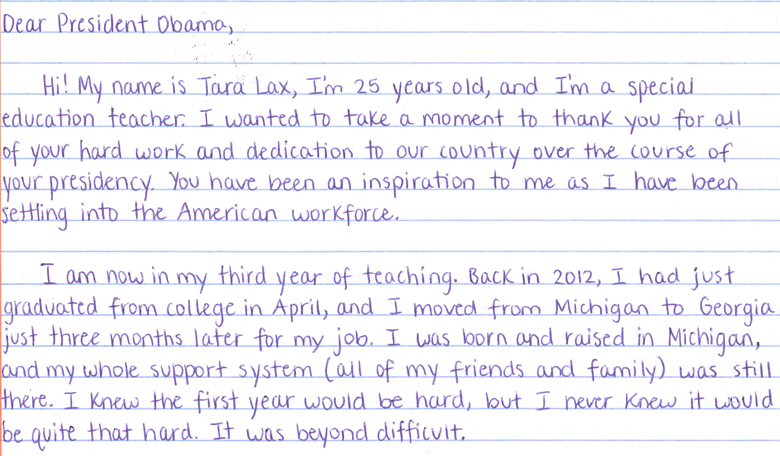 Dear President Obama,
Hi! My name is Tara Lax, I'm 25 years old, and I'm a special
education teacher. I wanted to take a moment to thank you for all
of your hard work and dedication to our country over the course of
your presidency. You have been an inspiration to me as I have been
settling into the American workforce.
I am now in my third year of teaching. Back in 2012, I had just
graduated from college in April, and I moved from Michigan to Georgia
just three months later for my job. I was born and raised in Michigan,
and my whole support system (all of my friends and family) was still
there. I knew the first year would be hard, but I never knew it would
be quite that hard. It was beyond difficult.